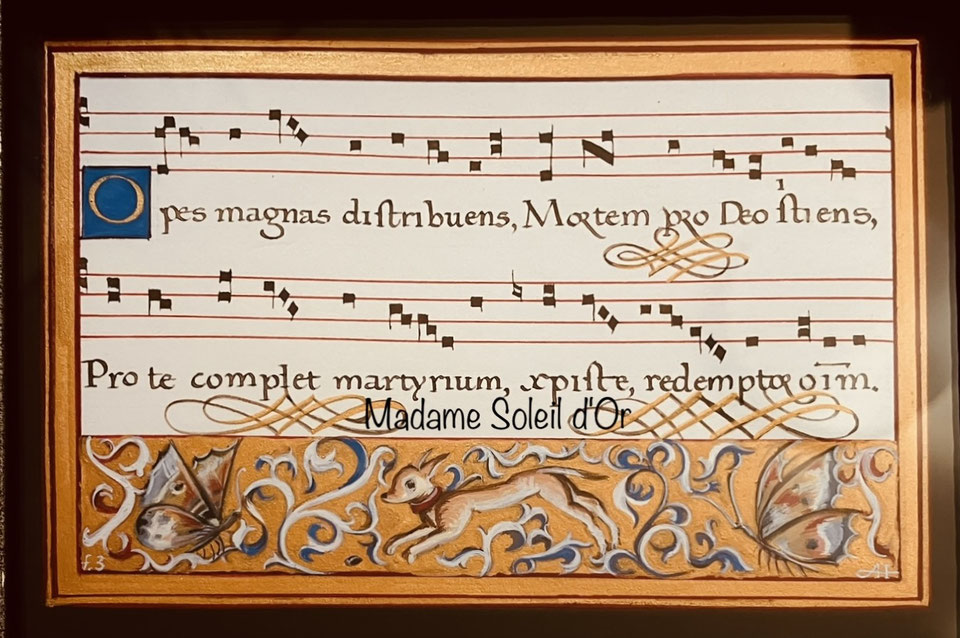 Opes magnas diſtribuens, Mortem pro Deo ſitiens,
Pro te complet martyrium, xpiſte, redemptor oīm.
Madame Soleil d'Or
f.3